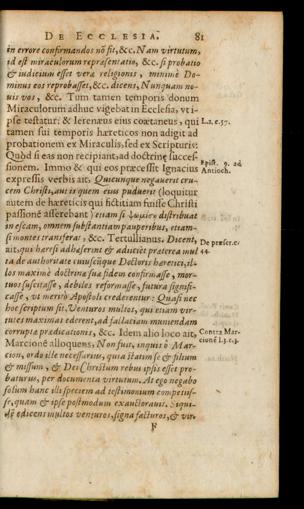 DE ECCLESIA. 81
in errore confirmandos nō fit, &c. Nam virtutum,
id est miraculorum repræsentatio, &c. si probatio
& iudicium esset veræ religionis, minimè Do-
minus eos reprobasset, &c. dicens, Nunquam no-
uis vos, &c. Tum tamen temporis donum
Miraculorum adhuc vigebat in Ecclesia, vt i-
pse testatur: & Ierenæus eius coætaneus, qui
L.2. c. 57.
tamen sui temporis hæreticos non adigit ad
probationem ex Miraculis, sed ex Scripturis:
Quòd si eas non recipiant, ad doctrinę succes-
sionem. Immo & qui eos præcessit Ignacius
Epist. 9. ad
Antioch.
expressis verbis ait, Quicunque negauerit cru-
cem Christi, aut is quem eius puduerit (loquitur
autem de hæreticis qui fictitiam fuisse Christi
passionē asserebant) etiam si distribuat
in escam, omnem substantiam pauperibus, etiam-
si montes transferat, &c. Tertullianus. Dicent,
De præscr. c.
44.
ait, qui hæresi adhæserint & adiuciēt præterea mul
ta de authoritate cuiuscūque Doctoris hæretici, il-
los maximè doctrinæ suæ fidem confirmasse, mor-
tuos suscitasse, debiles reformasse, futura signifi-
casse, vt meritò Apostoli crederentur: Quasi nec
hoc scriptum sit, Venturos multos, qui etiam vir-
tutes maximas ederent, ad fallaciam muniendam
corruptæ prædicationis, &c. Idem alio loco ait,
Contra Mar-
cionē l.3. c.3.
Marcionē alloquens, Non fuit, inquis ô Mar-
cion, ordo ille necessarius, quia statim se & filium
& missum, & Dei Christum rebus ipsis esset pro-
baturus, per documenta virtutum. At ego negabo
solum hanc illi speciem ad testimonium competiis-
se, quam & ipse postmodum exauctorauit. Siqui-
dē edicens multos venturos, signa facturos, & vir-
F